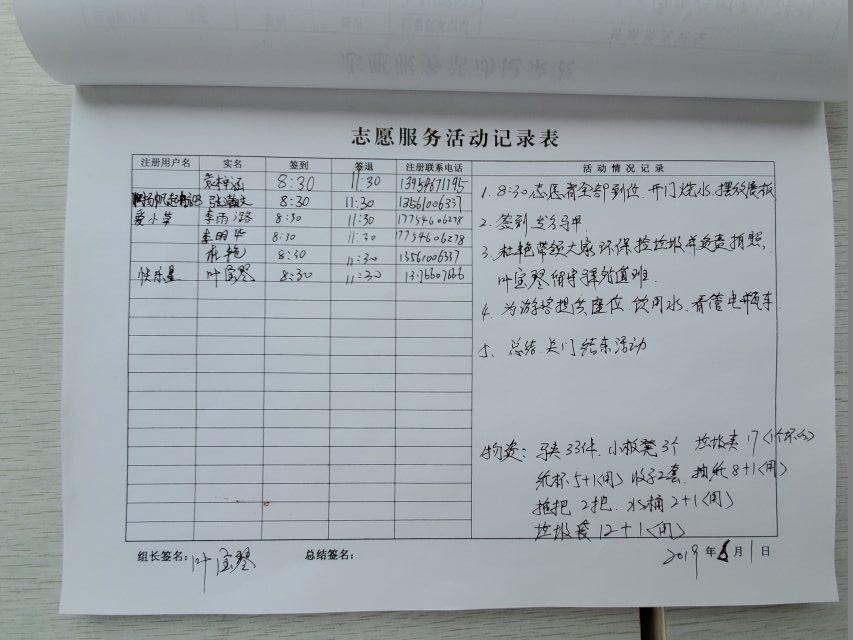 志愿服务活动记录表
注册用户名 实名 签到 签退 注册联系电话 活动情况记录
梓涵 8:30 11:30 13954671195
8:30 11:30 13561006337
爱小草 李雨潞 8:30 11:30 17754606278
李明华 8:30 11:30 17754606278
杜艳 8:30 11:30 13561006337
快乐星 叶宝琴 8:30 11:30
1. 8:30志愿者全部到位.开门烧水.摆放展板
2. 签到 发马甲
3. 杜艳带领大家环保捡垃圾并负责拍照.
叶宝琴留守驿站值班.
4. 为游客提供座位.饮用水.看管电瓶车
5、总结.关门结束活动
物资: 马夹33件.小板凳3个 垃圾夹17(1个坏的)
纸杯5+1(闲) 2套.抽纸8+1(闲)
拖把2把.水桶2+1(闲)
垃圾袋12+1(闲)
组长签名: 叶宝琴 总结签名: 2019年6月1日